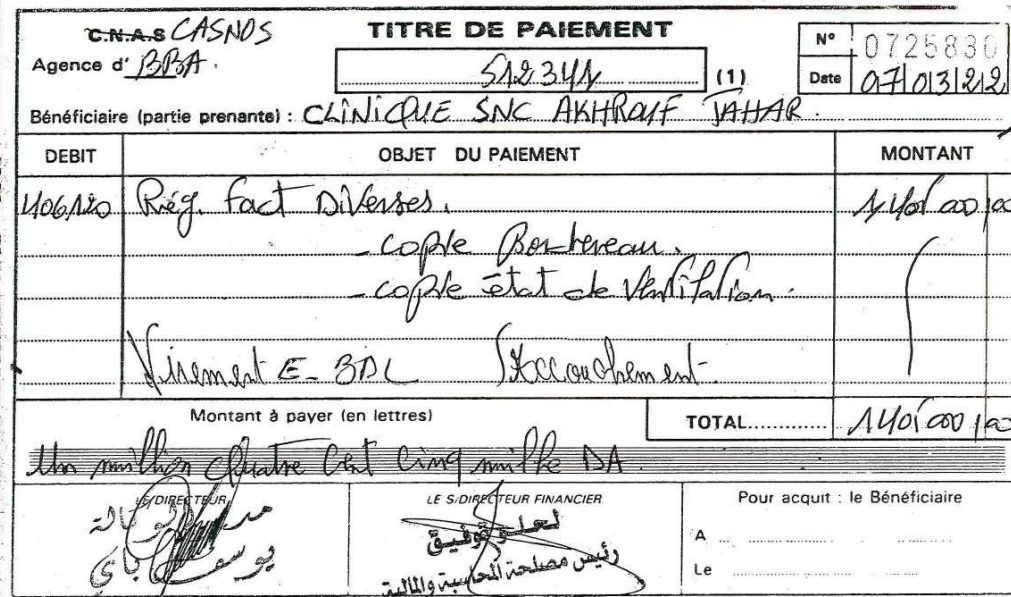 C.N.A.S CASNOS
TITRE DE PAIEMENT
N° 0725830
Agence d' BBA.
512341 (1)
Date 07/03/22
Bénéficiaire (partie prenante) : CLINIQUE SNC AKHROUF TAHAR.
DEBIT OBJET DU PAIEMENT MONTANT
406120 Rég. fact Diverses. 1405 000,00
- copie Bordereau.
- copie état de Ventilation.
Virement E- BDL Accouchement.
Montant à payer (en lettres) TOTAL............. 1405 000,00
Un million Quatre Cent Cinq mille DA
LE DIRECTEUR LE S/DIRECTEUR FINANCIER Pour acquit : le Bénéficiaire
مدير الوكالة
يوسف باي
لعلو توفيق
رئيس مصلحة المحاسبة والمالية
A
Le